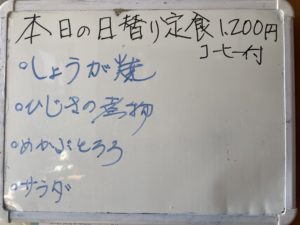 本日の日替り定食1,200円
コーヒー付
○しょうが焼
○ひじきの煮物
○めかぶとろろ
○サラダ